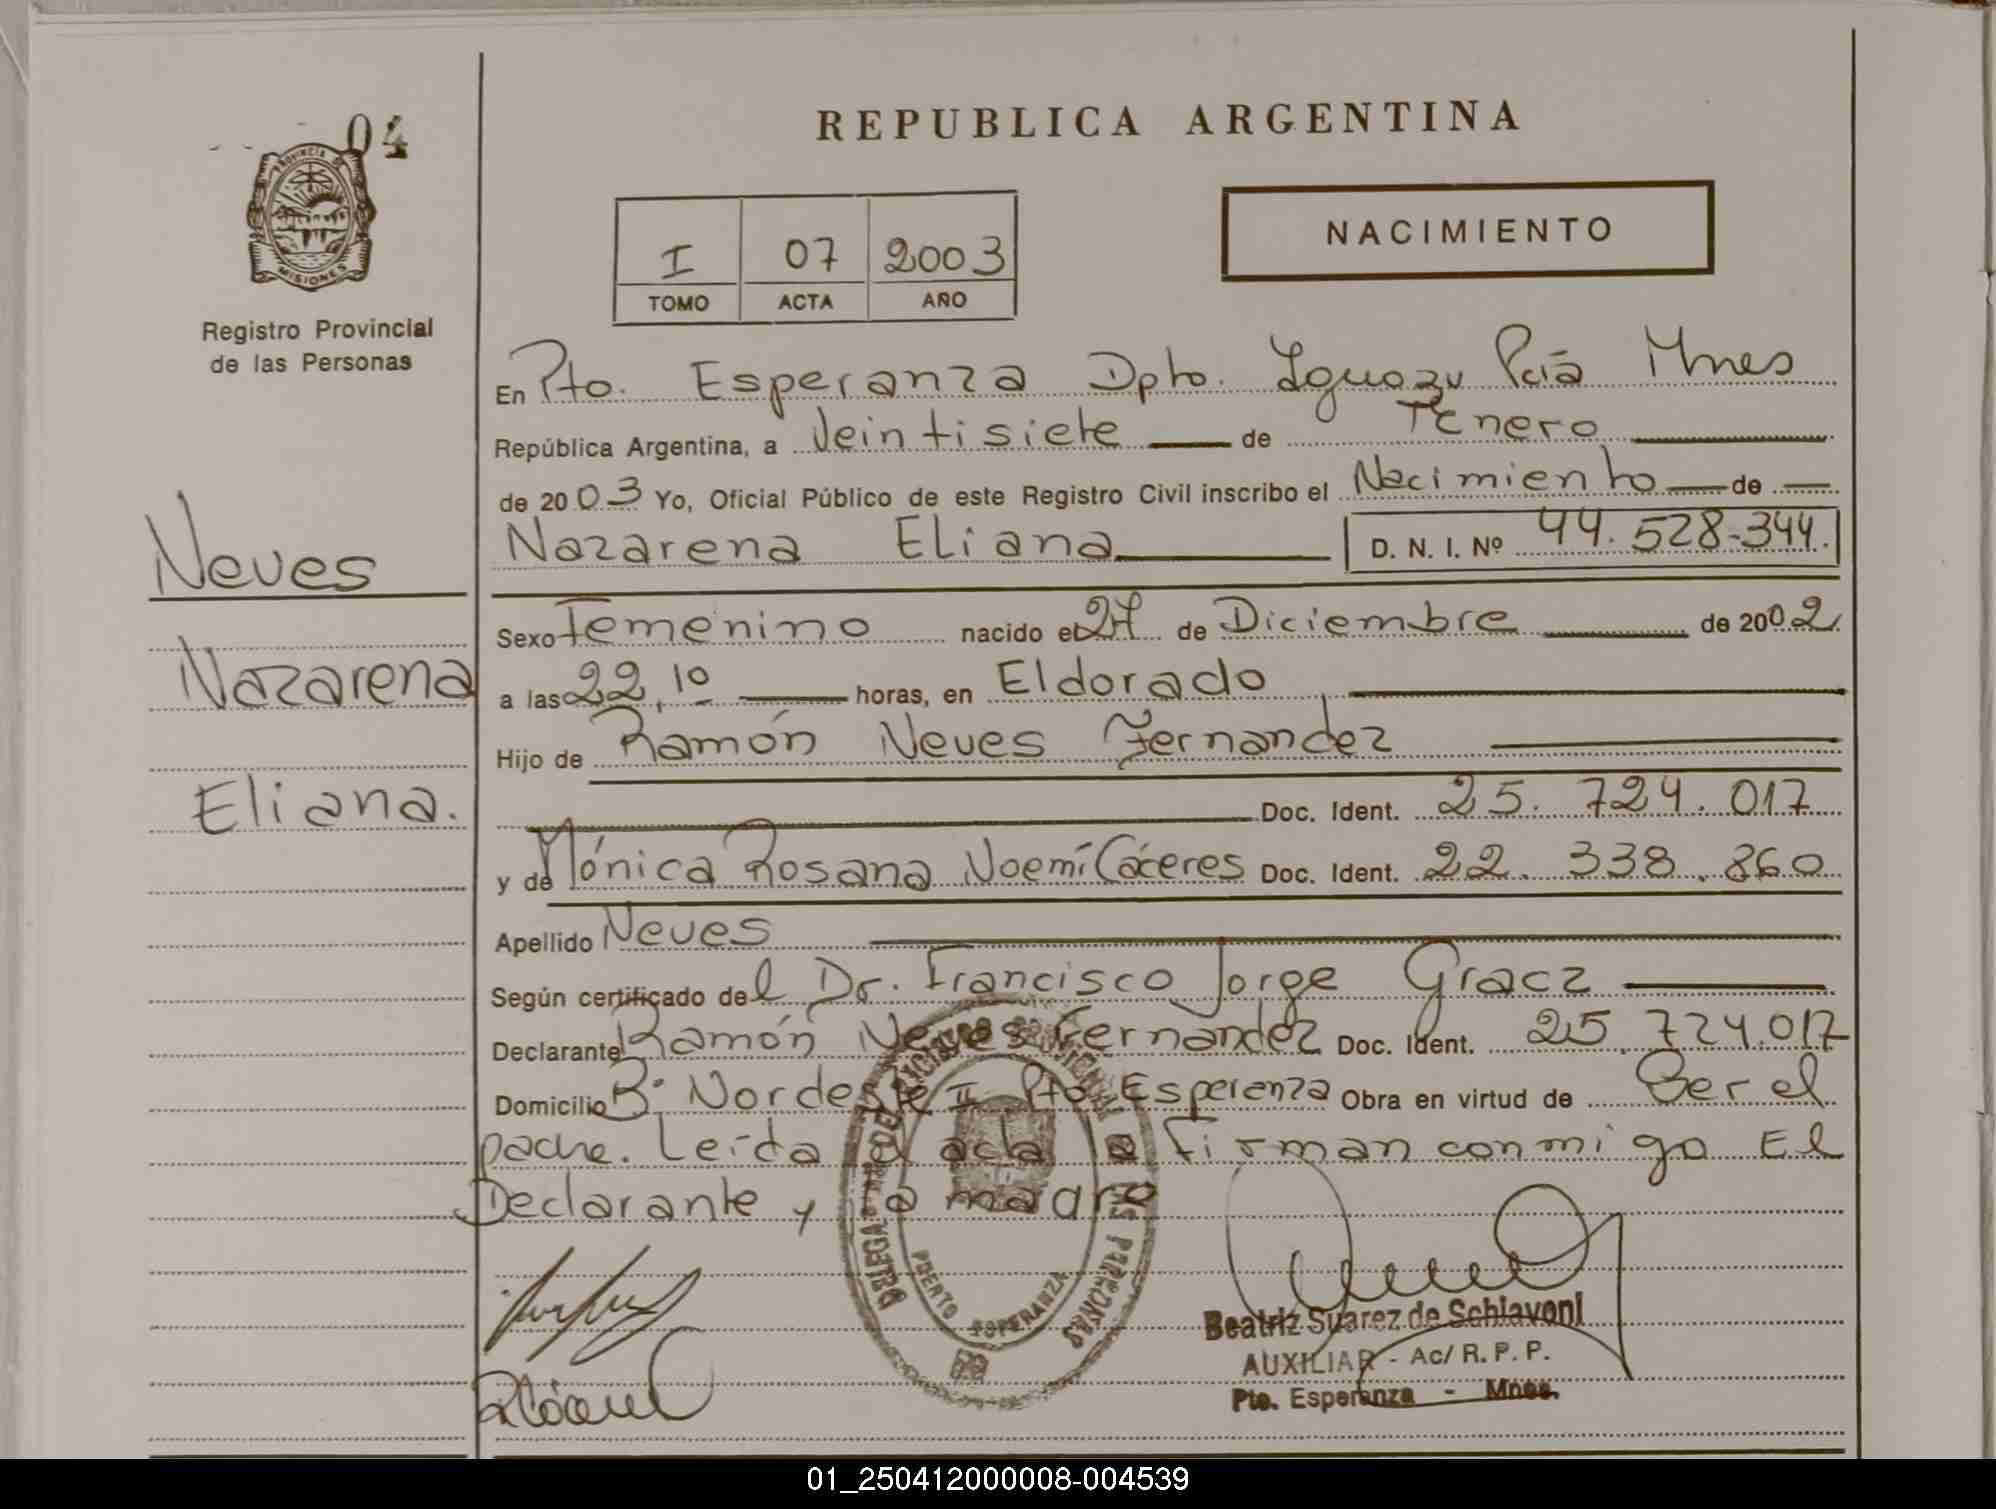 04
PROVINCIA DE
MISIONES
Registro Provincial
de las Personas
Neves
Nazarena
Eliana.
REPUBLICA ARGENTINA
I 07 2003
TOMO ACTA AÑO
NACIMIENTO
En Pto. Esperanza Dpto. Iguazu Pcia Mnes
República Argentina, a Veintisiete de Enero
de 2003 Yo, Oficial Público de este Registro Civil inscribo el Nacimiento de
Nazarena Eliana D. N. I. Nº 44.528.344.
Sexo Femenino nacido el 27 de Diciembre de 2002
a las 22,10 horas, en Eldorado
Hijo de Ramón Neves Fernandez
Doc. Ident. 25.724.017
y de Mónica Rosana Noemí Cáceres Doc. Ident. 22.338.860
Apellido Neves
Según certificado del Dr. Francisco Jorge Gracz
Declarante Ramón Neves Fernandez Doc. Ident. 25.724.017
Domicilio Bº Nordeste I Pto. Esperanza Obra en virtud de Ser el
padre. Leída el acta la firman conmigo El
Declarante y la madre
PUERTO ESPERANZA
Beatriz Suarez de Schiavoni
AUXILIAR - Ac/ R. P. P.
Pto. Esperanza - Mnes.
01_250412000008-004539